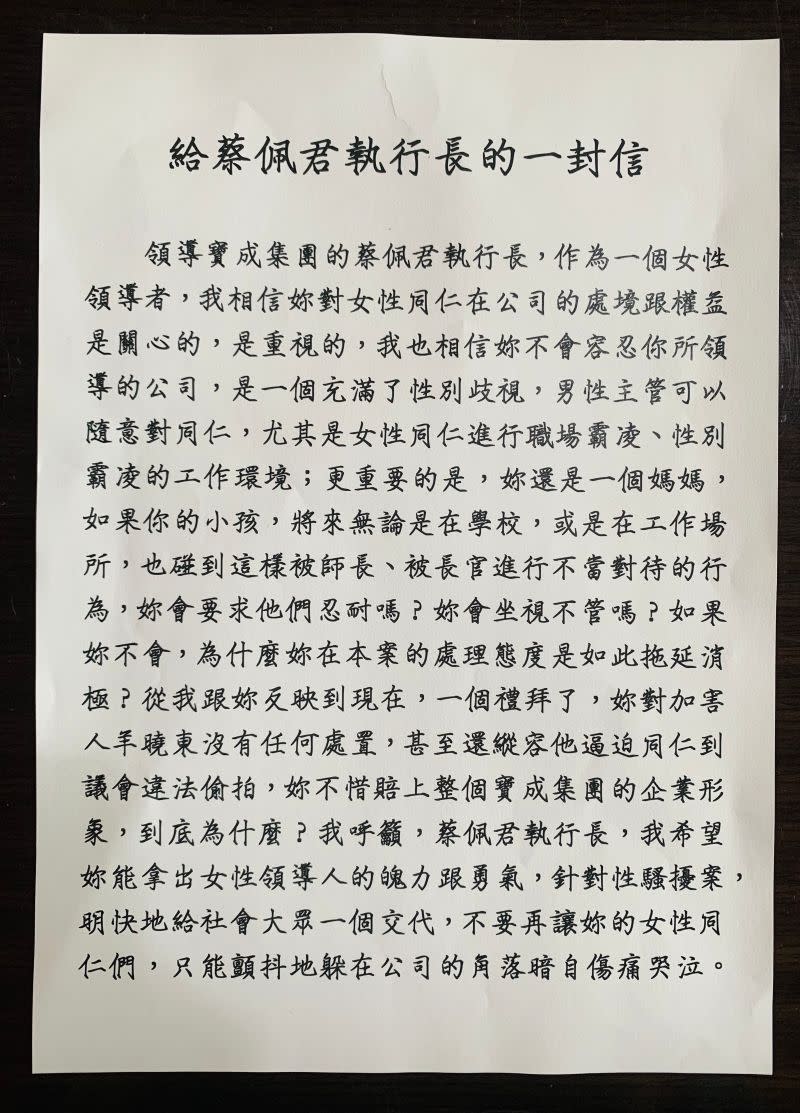 給蔡佩君執行長的一封信
領導寶成集團的蔡佩君執行長，作為一個女性
領導者，我相信妳對女性同仁在公司的處境跟權益
是關心的，是重視的，我也相信妳不會容忍你所領
導的公司，是一個充滿了性別歧視，男性主管可以
隨意對同仁，尤其是女性同仁進行職場霸凌、性別
霸凌的工作環境；更重要的是，妳還是一個媽媽，
如果你的小孩，將來無論是在學校，或是在工作場
所，也碰到這樣被師長、被長官進行不當對待的行
為，妳會要求他們忍耐嗎？妳會坐視不管嗎？如果
妳不會，為什麼妳在本案的處理態度是如此拖延消
極？從我跟妳反映到現在，一個禮拜了，妳對加害
人羊曉東沒有任何處置，甚至還縱容他逼迫同仁到
議會違法偷拍，妳不惜賠上整個寶成集團的企業形
象，到底為什麼？我呼籲，蔡佩君執行長，我希望
妳能拿出女性領導人的魄力跟勇氣，針對性騷擾案，
明快地給社會大眾一個交代，不要再讓妳的女性同
仁們，只能顫抖地躲在公司的角落暗自傷痛哭泣。